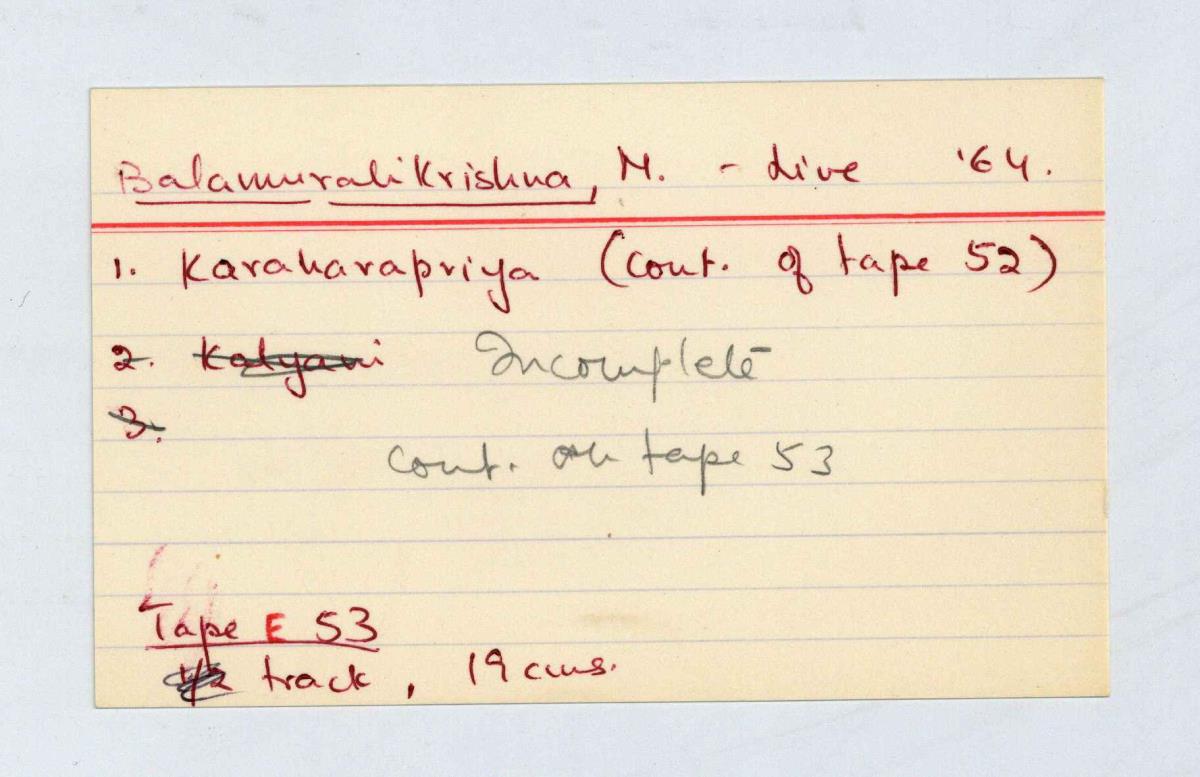 Balamuralikrishna, M. - Live '64.
1. Karaharapriya (cont. of tape 52)
2. Kalyani Incomplete
3.
cont. on tape 53
Tape E 53
1/2 track, 19 cms.